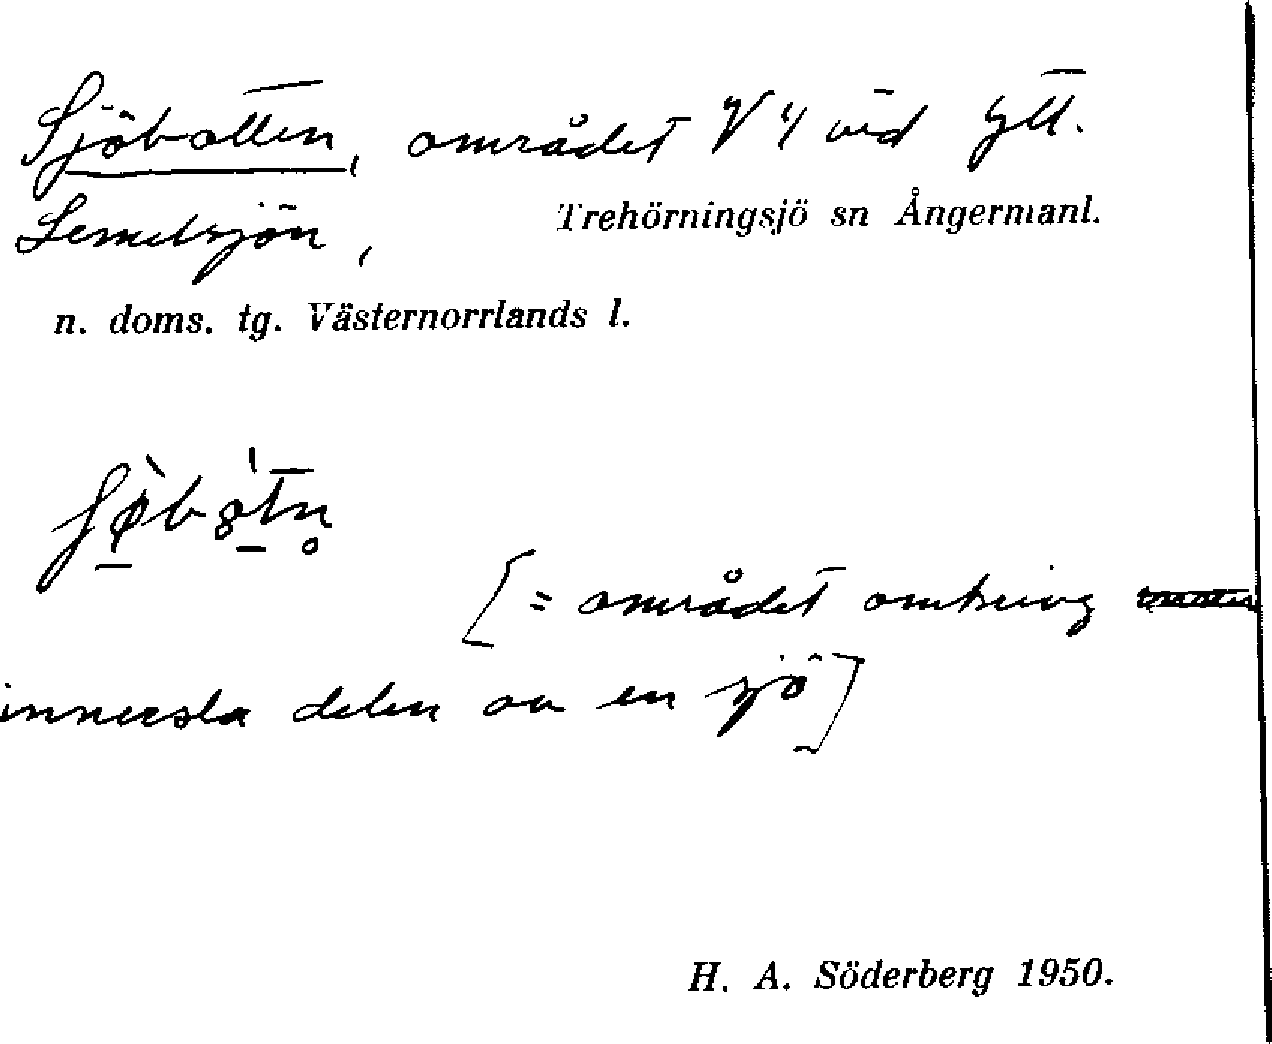 Sjöbotten, området V 4 vid Ytt.
Lemelsjön, Trehörningsjö sn Ångermanl.
n. doms. tg. Västernorrlands l.
[= området omkring
innersta delen av en sjö]
H. A. Söderberg 1950.